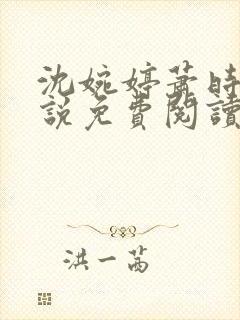 沈婉婷萧时
說免費閱讀
洪一茜